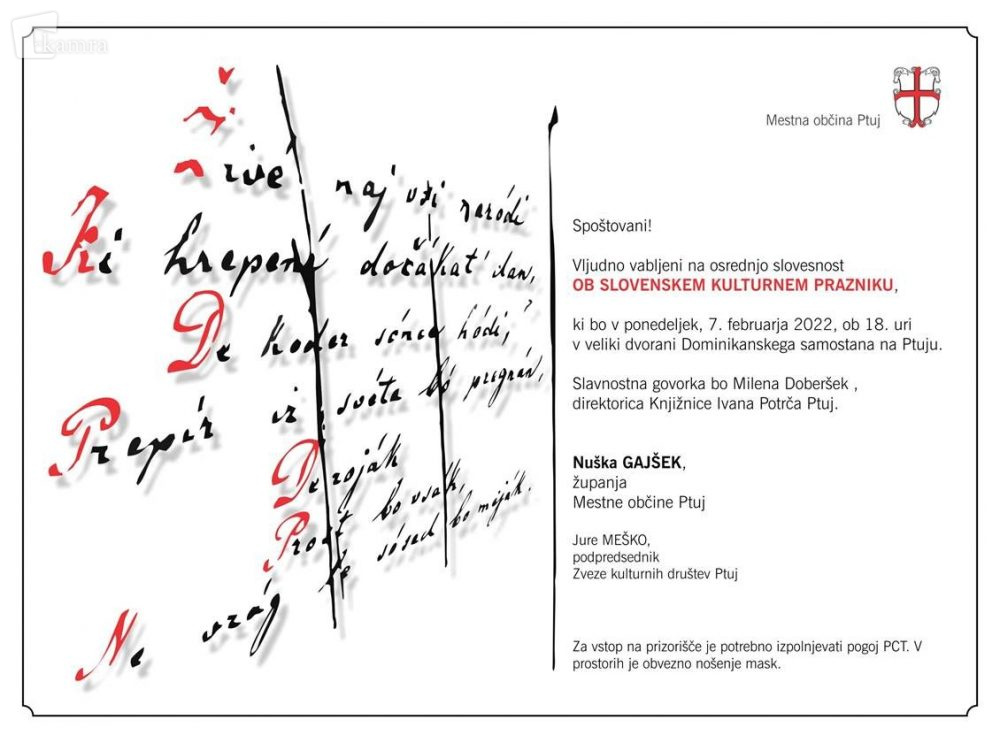 kamra
Živé naj vsi naródi
Ki hrepené dočakat' dan,
De koder sónce hódi,
Prepír iz svéta bo pregnán,
De roják
Prost bo vsak,
Ne vrág le sósed bo meják.
Mestna občina Ptuj
Spoštovani!
Vljudno vabljeni na osrednjo slovesnost
OB SLOVENSKEM KULTURNEM PRAZNIKU,
ki bo v ponedeljek, 7. februarja 2022, ob 18. uri
v veliki dvorani Dominikanskega samostana na Ptuju.
Slavnostna govorka bo Milena Doberšek ,
direktorica Knjižnice Ivana Potrča Ptuj.
Nuška GAJŠEK,
županja
Mestne občine Ptuj
Jure MEŠKO,
podpredsednik
Zveze kulturnih društev Ptuj
Za vstop na prizorišče je potrebno izpolnjevati pogoj PCT. V
prostorih je obvezno nošenje mask.